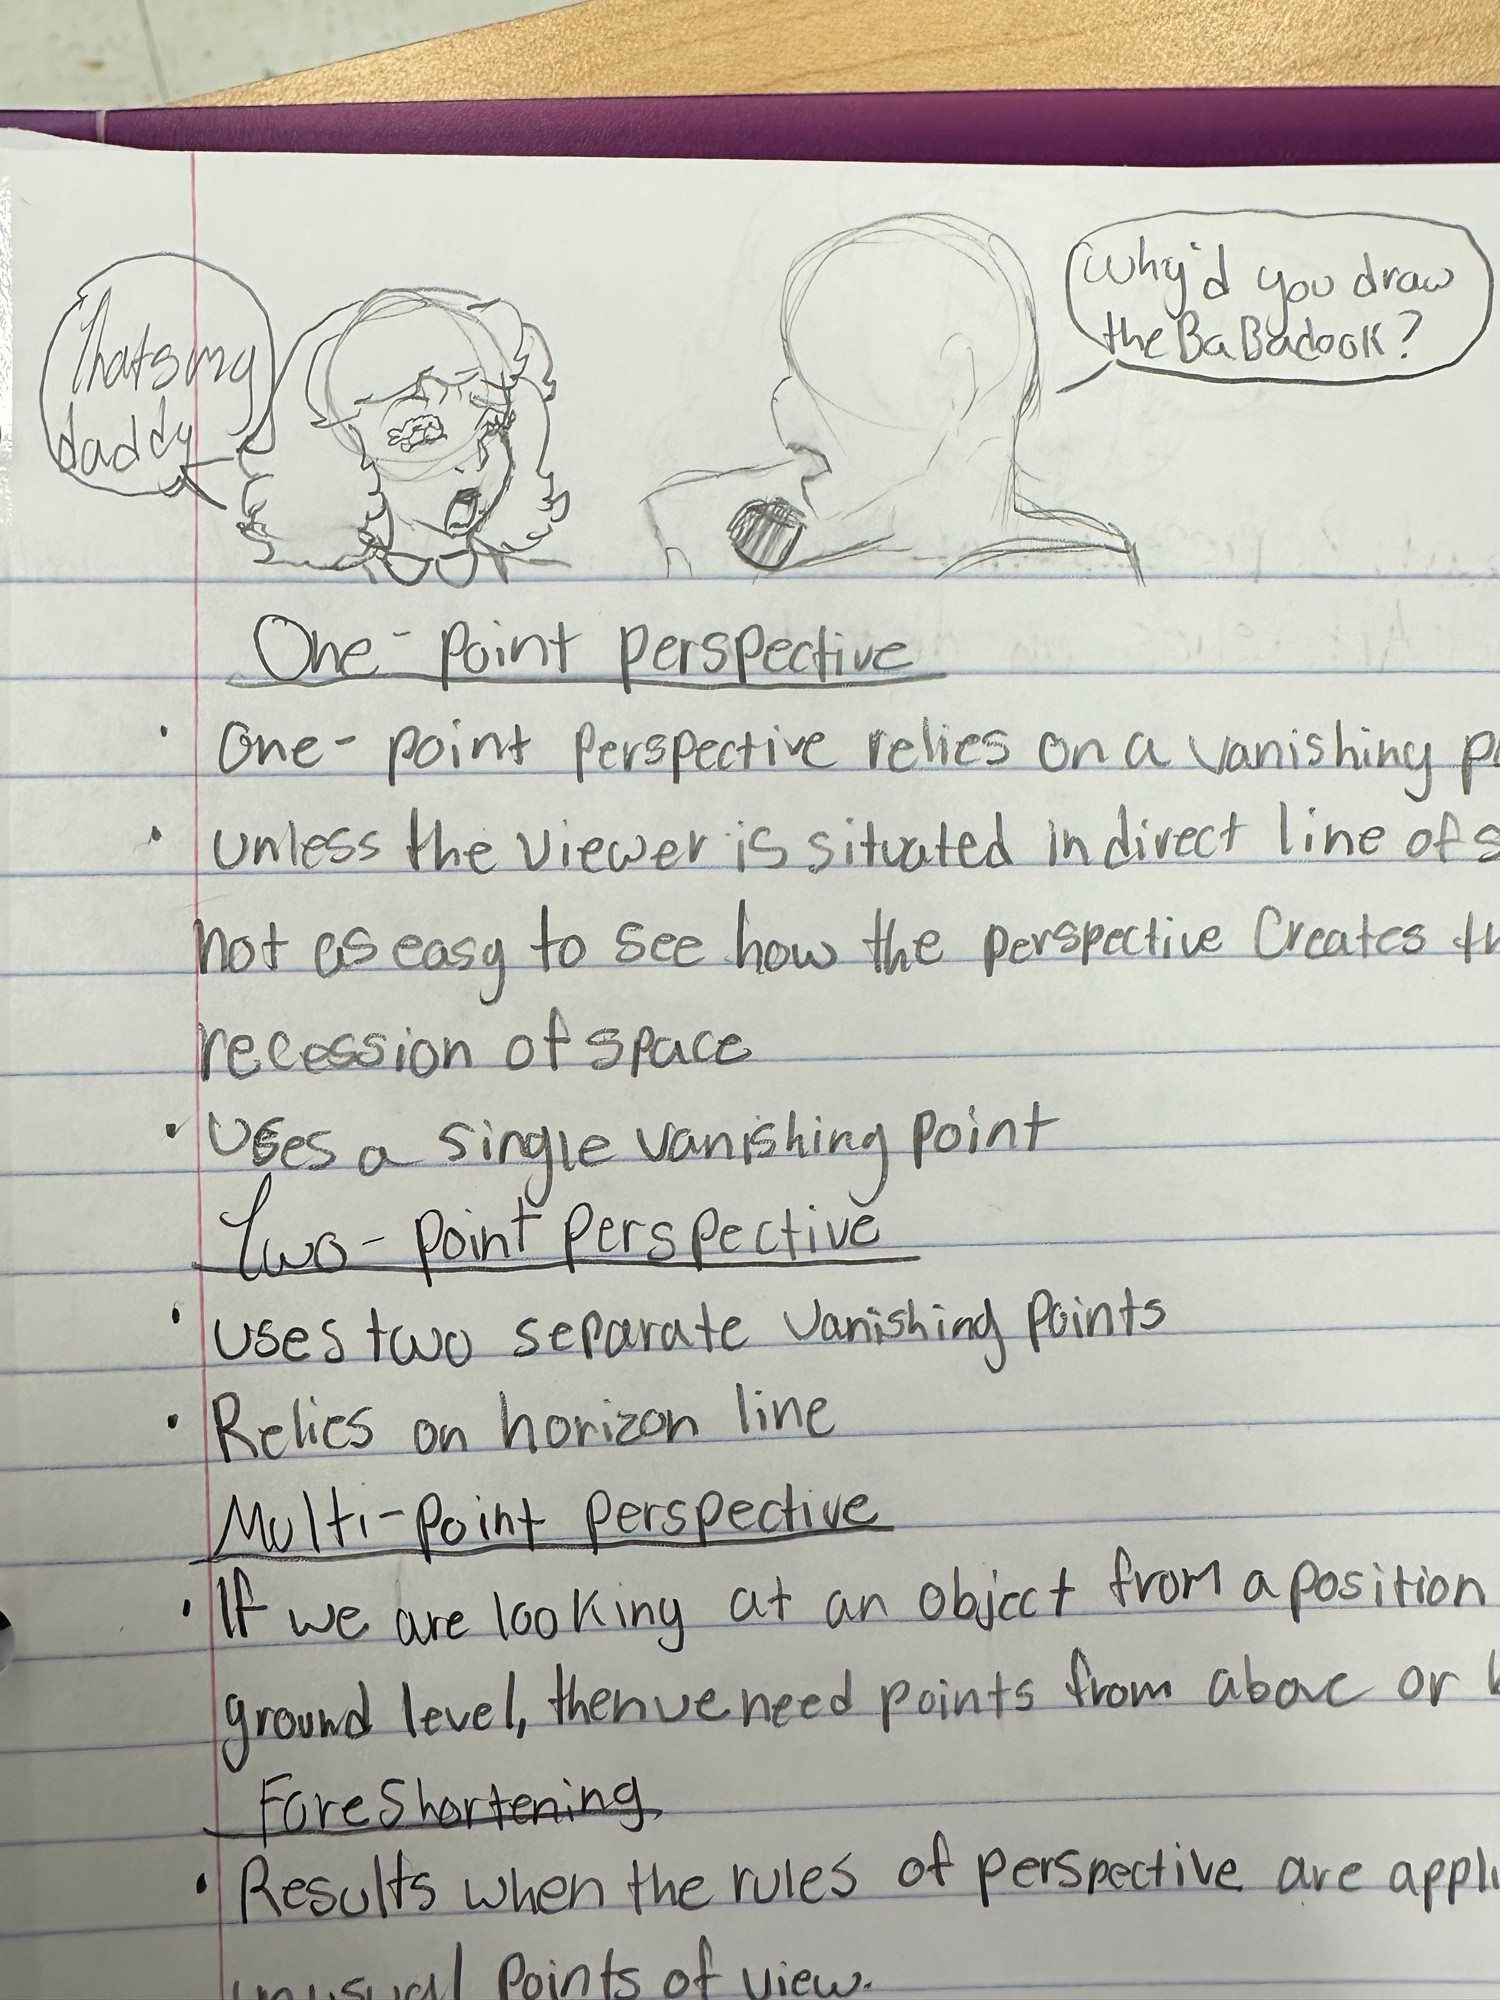 Thats my
daddy
Why'd you draw
the BaBadook?
One-point perspective
• One-point perspective relies on a vanishing
• unless the viewer is situated in direct line of
not as easy to see how the perspective creates
recession of space
• Uses a single vanishing point
Two-point perspective
• uses two separate vanishing points
• Relies on horizon line
Multi-point perspective
• If we are looking at an object from a position
ground level, then we need points from above or
Foreshortening
• Results when the rules of perspective are
unusual points of view.